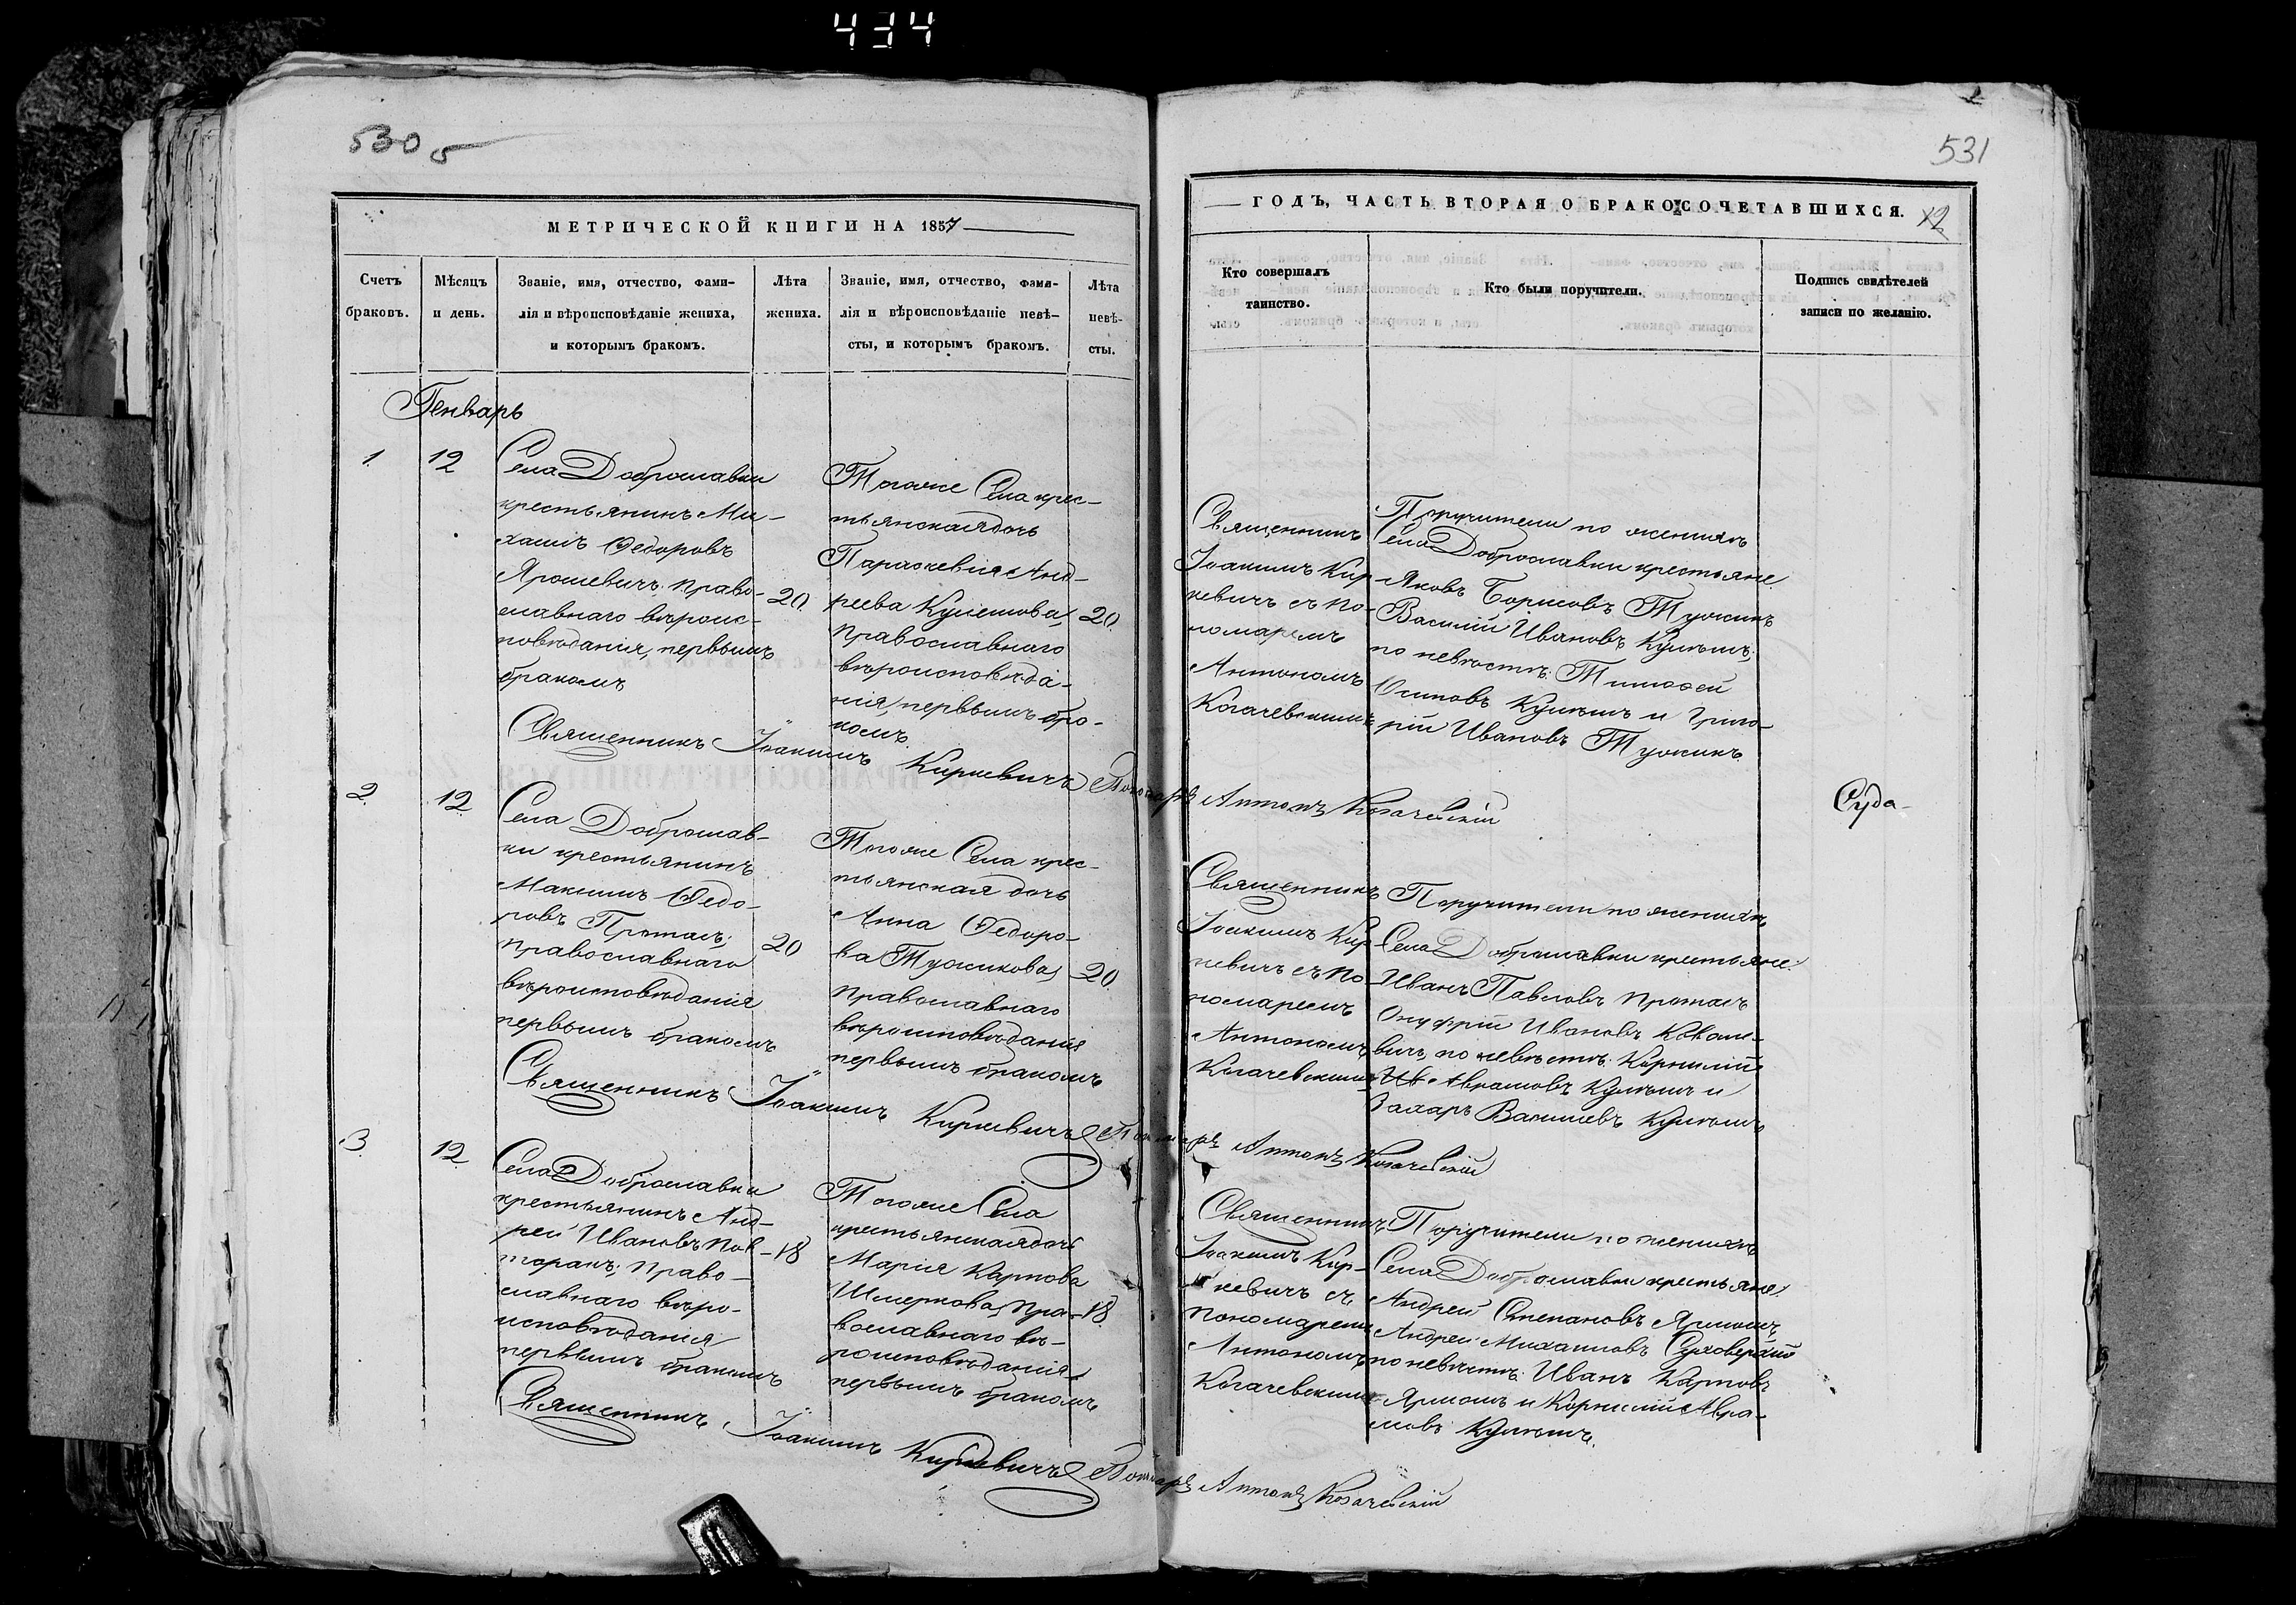 434
530 об
531
МЕТРИЧЕСКОЙ КНИГИ НА 1857
ГОДЪ, ЧАСТЬ ВТОРАЯ О БРАКОСОЧЕТАВШИХСЯ.
12
Счетъ
браковъ.
Мѣсяцъ
и день.
Званіе, имя, отчество, фами-
лія и вѣроисповѣданіе жениха,
и которымъ бракомъ.
Лѣта
жениха.
Званіе, имя, отчество, фами-
лія и вѣроисповѣданіе невѣ-
сты, и которымъ бракомъ.
Лѣта
невѣ-
сты.
Кто совершалъ
таинство.
Кто были поручители.
Подпись свидѣтелей
записи по желанію.
Генварь
1.
12
Села Доброславки
крестьянинъ Ми-
хаилъ Ѳедоровъ
Ярошевичъ, право-
славнаго вѣроис-
повѣданія, первымъ
бракомъ
20.
Тогоже Села крес-
тьянская дочь
Параскевія Анд-
реева Кулешова,
православнаго
вѣроисповѣда-
нія, первымъ бра-
комъ.
20.
Священникъ
Іоакимъ Кир-
кевичъ съ по-
номаремъ
Антономъ
Когачевскимъ
Поручители по женихѣ
Села Доброславки крестьяне
Яковъ Борисовъ Тужикъ
Василій Ивановъ Кулѣшъ;
по невѣстѣ: Тимофей
Осиповъ Кулѣшъ и Григо-
рій Ивановъ Тужикъ.
Священникъ Іоакимъ Киркевичъ Пономарь Антонъ Когачевскій
Суда-
2.
12
Села Доброслав-
ки крестьянинъ
Максимъ Ѳедо-
ровъ Протасъ,
православнаго
вѣроисповѣданія
первымъ бракомъ
20
Тогоже Села крес-
тьянская дочь
Анна Ѳедоро-
ва Тужикова,
православнаго
вѣроисповѣданія
первымъ бракомъ
20
Священникъ
Іоакимъ Кир-
кевичъ съ по-
номаремъ
Антономъ
Когачевскимъ
Поручители по женихѣ
Села Доброславки крестьяне:
Иванъ Павловъ Протасъ
Онуфрій Ивановъ
вичъ, по невѣстѣ: Корнилій
Аврамовъ Кулѣшъ и
Захаръ Васильевъ Кулѣшъ
Священникъ Іоакимъ Киркевичъ Пономарь Антонъ Когачевскій
3.
12
Села Доброславки
крестьянинъ Анд-
рей Ивановъ Пов-
торакъ, право-
славнаго вѣро-
исповѣданія
первымъ бракомъ
18
Тогоже Села
крестьянская дочь
Марія Карпова
Шмеркова, пра-
вославнаго вѣ-
роисповѣданія
первымъ бракомъ
18
Священникъ
Іоакимъ Кир-
кевичъ съ
Пономаремъ
Антономъ
Когачевскимъ
Поручители по женихѣ
Села Доброславки крестьяне:
Андрей Степановъ
Андрей Михаиловъ
по невѣстѣ: Иванъ Карповъ
и Корнилій Авра-
мовъ Кулѣшъ.
Священникъ Іоакимъ Киркевичъ Пономарь Антонъ Когачевскій